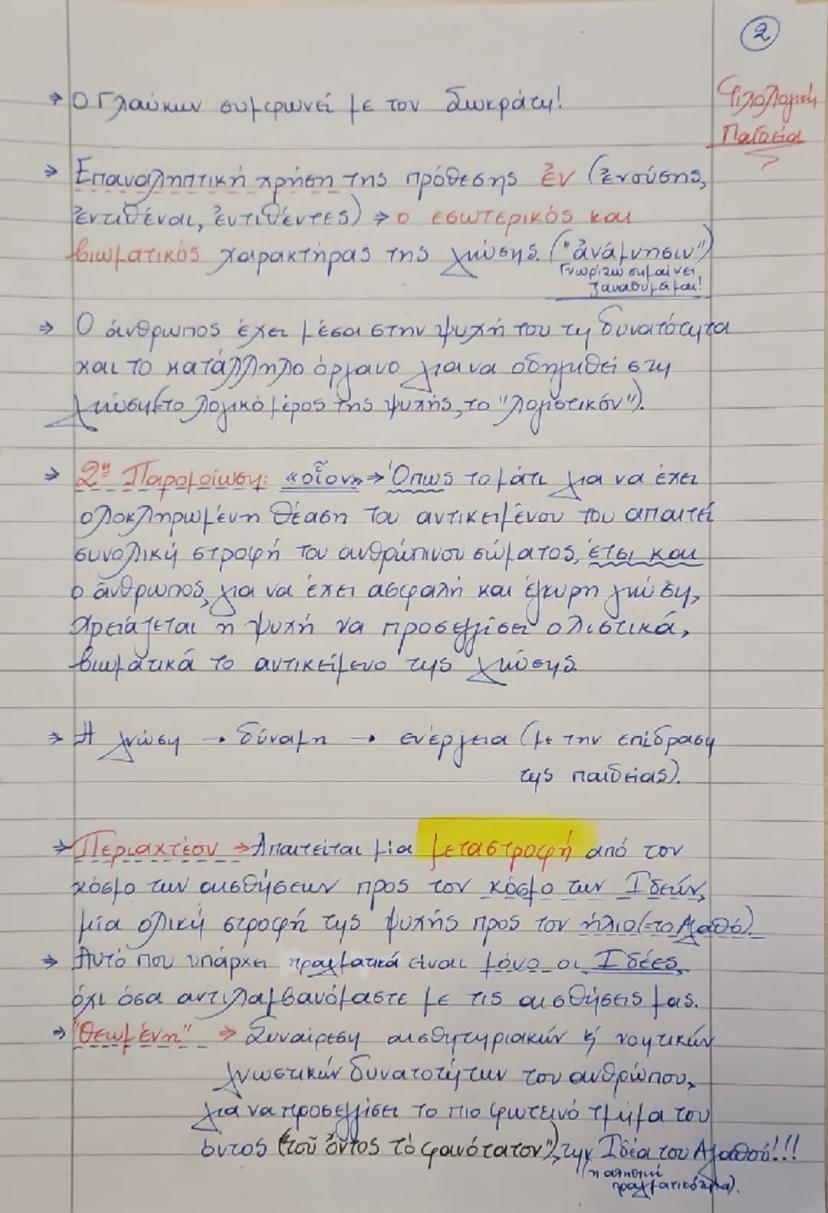 2
Φιλολογική
Παιδεία
→ Ο Γλαύκων συμφωνεί με τον Σωκράτη!
→ Επαναληπτική χρήση της πρόθεσης ἐν (ἐνούσης,
ἐντιθέναι, ἐντιθέντες) → ο εσωτερικός και
βιωματικός χαρακτήρας της γνώσης. ("ἀνάμνησιν")
Γνωρίζω σημαίνει
ξαναθυμάμαι!
→ Ο άνθρωπος έχει μέσα στην ψυχή του τη δυνατότητα
και το κατάλληλο όργανο για να οδηγηθεί στη
γνώση (το λογικό μέρος της ψυχής, το "λογιστικόν").
→ 2η Παρομοίωση: «οἷον» → Όπως το μάτι για να έχει
ολοκληρωμένη θέαση του αντικειμένου του απαιτεί
συνολική στροφή του ανθρώπινου σώματος, έτσι και
ο άνθρωπος, για να έχει ασφαλή και έγκυρη γνώση,
χρειάζεται η ψυχή να προσεγγίσει ολιστικά,
βιωματικά το αντικείμενο της γνώσης.
→ Η γνώση → δύναμη → ενέργεια (με την επίδραση
της παιδείας).
→ Περιακτέον → Απαιτείται μία μεταστροφή από τον
κόσμο των αισθήσεων προς τον κόσμο των Ιδεών,
μία ολική στροφή της ψυχής προς τον ήλιο (=το Αγαθό)
→ Αυτό που υπάρχει πραγματικά είναι μόνο οι Ιδέες,
όχι όσα αντιλαμβανόμαστε με τις αισθήσεις μας.
→ "Θεωμένη" → Συναίρεση αισθητηριακών & νοητικών
γνωστικών δυνατοτήτων του ανθρώπου,
για να προσεγγίσει το πιο φωτεινό τμήμα του
όντος ("τοῦ ὄντος τὸ φανότατον"), την Ιδέα του Αγαθού!!!
(η αληθινή
πραγματικότητα).